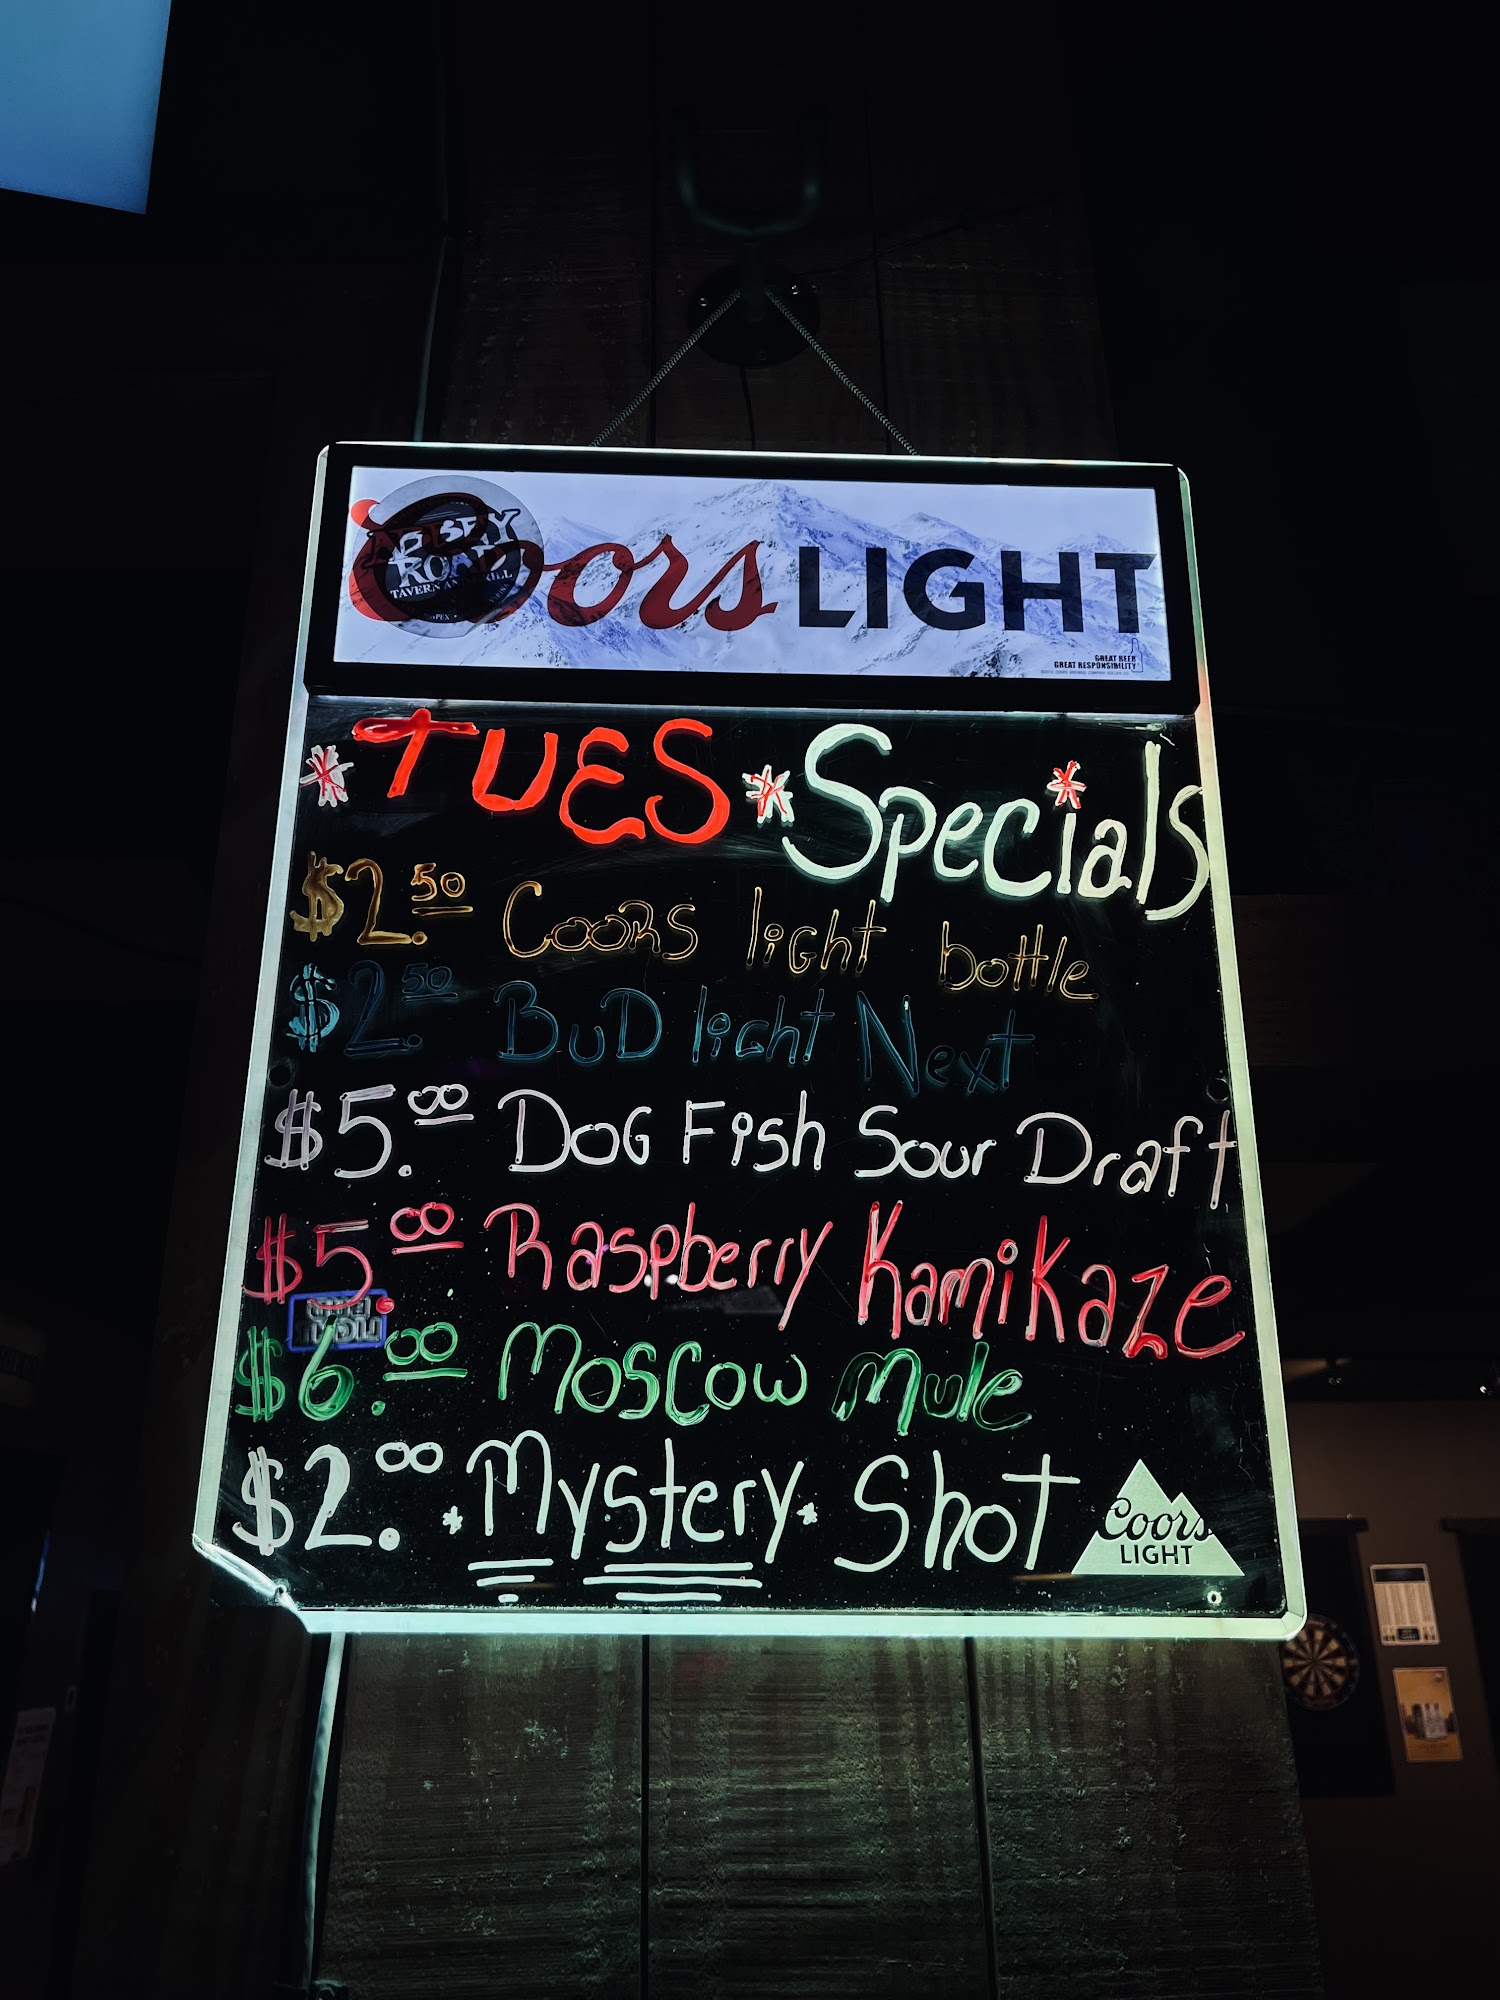 ABBEY ROAD
TAVERN AND GRILL
Coors LIGHT
GREAT BEER
GREAT RESPONSIBILITY
* TUES * Specials
$2.50 Coors light bottle
$2.50 BuD light Next
$5.00 DoG Fish Sour Draft
$5.00 Raspberry Kamikaze
$6.00 Moscow Mule
$2.00 *Mystery* Shot
Coors
LIGHT